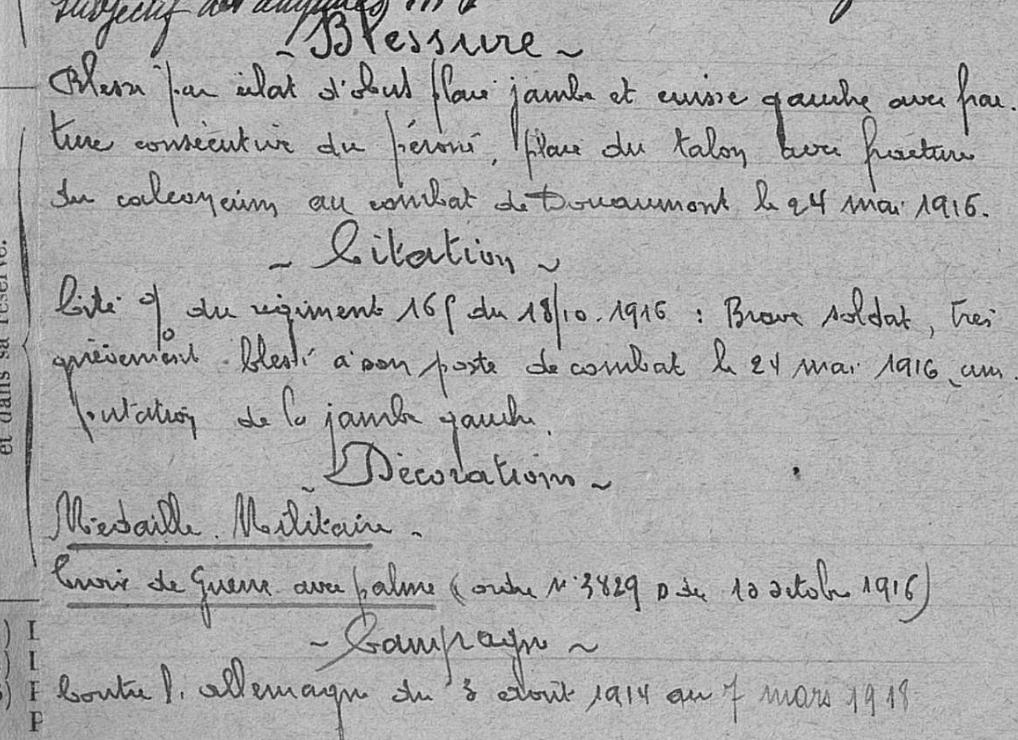 subjectif des
~ Blessure ~
Blessé par éclat d'obus plaie jambe et cuisse gauche avec frac.
ture consécutive du péroné, plaie du talon avec fracture
du calcanéum au combat de Douaumont le 24 mai 1916.
~ Citation ~
Cité o/o du régiment 165 du 18/10.1916 : Brave soldat, très
grièvement blessé à son poste de combat le 24 mai 1916, am.
putation de la jambe gauche.
~ Décorations ~
Médaille Militaire.
Croix de Guerre avec palme (ordre N° 3829 D du 10 octobre 1916)
~ Campagne ~
Contre l'allemagne du 3 août 1914 au 7 mars 1918
et dans sa réserve.